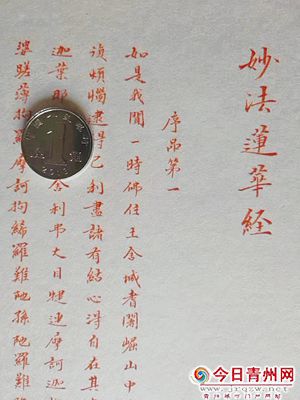 妙法蓮華経
序品第一
如是我聞一時佛住王舍城耆闍崛山中
復煩惱逮得己利盡諸有結心得自在其
迦葉那
舍利弗大目犍連摩訶迦
婆蹉薄拘羅摩訶拘絺羅難陀孫陀羅難
1
今日青州网
www.jrqzw.net